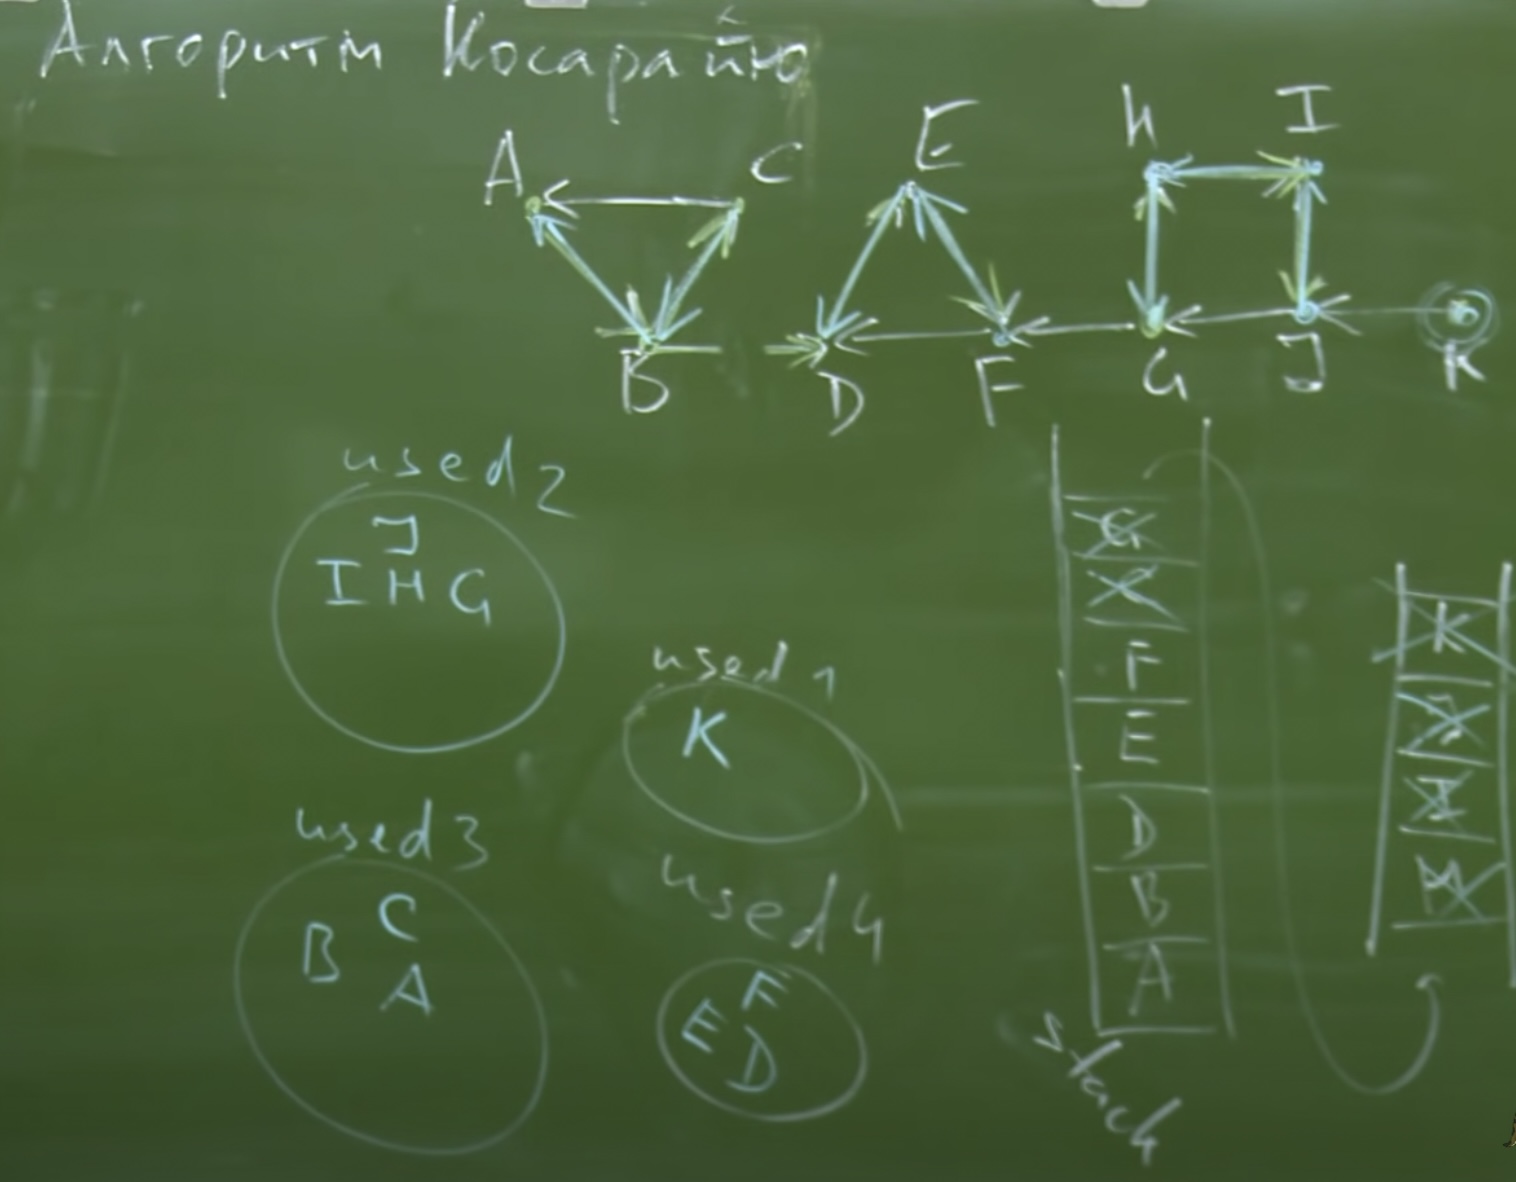 Алгоритм Косарайю
A C E H I
B D F G J K
used2
J
I H G
used1
K
used3
C
B A
used4
F
E D
G
F
E
D
B
A
stack
K
J
I
H